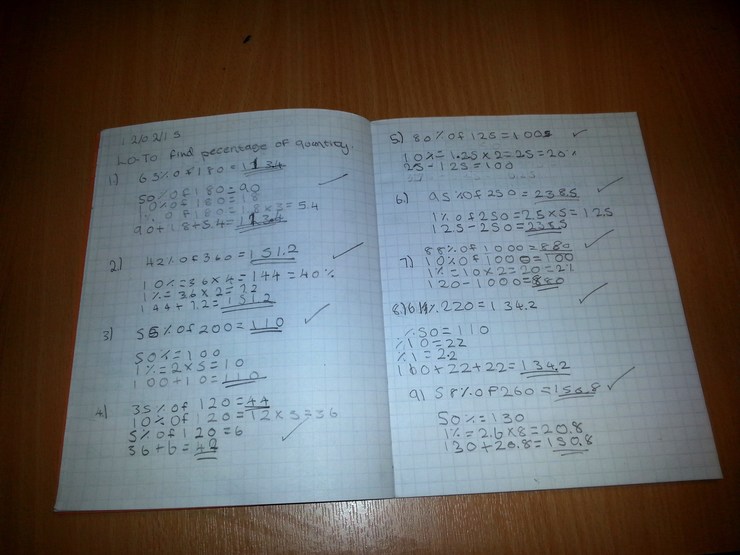 12/02/15
L.O-To find pecentage of quantity.
1) 63% of 180 = 113.4
50% of 180 = 90
10% of 180 = 18
1% of 180 = 1.8 x 3 = 5.4
90 + 18 + 5.4 = 113.4
2) 42% of 360 = 151.2
10% = 36 x 4 = 144 = 40%
1% = 3.6 x 2 = 7.2
144 + 7.2 = 151.2
3) 55% of 200 = 110
50% = 100
1% = 2 x 5 = 10
100 + 10 = 110
4) 35% of 120 = 44
10% of 120 = 12 x 3 = 36
5% of 120 = 6
36 + 6 = 42
5) 80% of 125 = 100
10% = 1.25 x 2 = 25 = 20%
25 - 125 = 100
6) 95% of 250 = 238.5
1% of 250 = 2.5 x 5 = 125
125 - 250 = 238.5
88% of 1000 = 880
7) 10% of 1000 = 100
1% = 10 x 2 = 20 = 2%
120 - 1000 = 880
8) 220 = 134.2
%50 = 110
%10 = 22
%1 = 2.2
100 + 22 + 22 = 134.2
9) 58% of 260 = 150.8
50% = 130
1% = 2.6 x 8 = 20.8
130 + 20.8 = 150.8